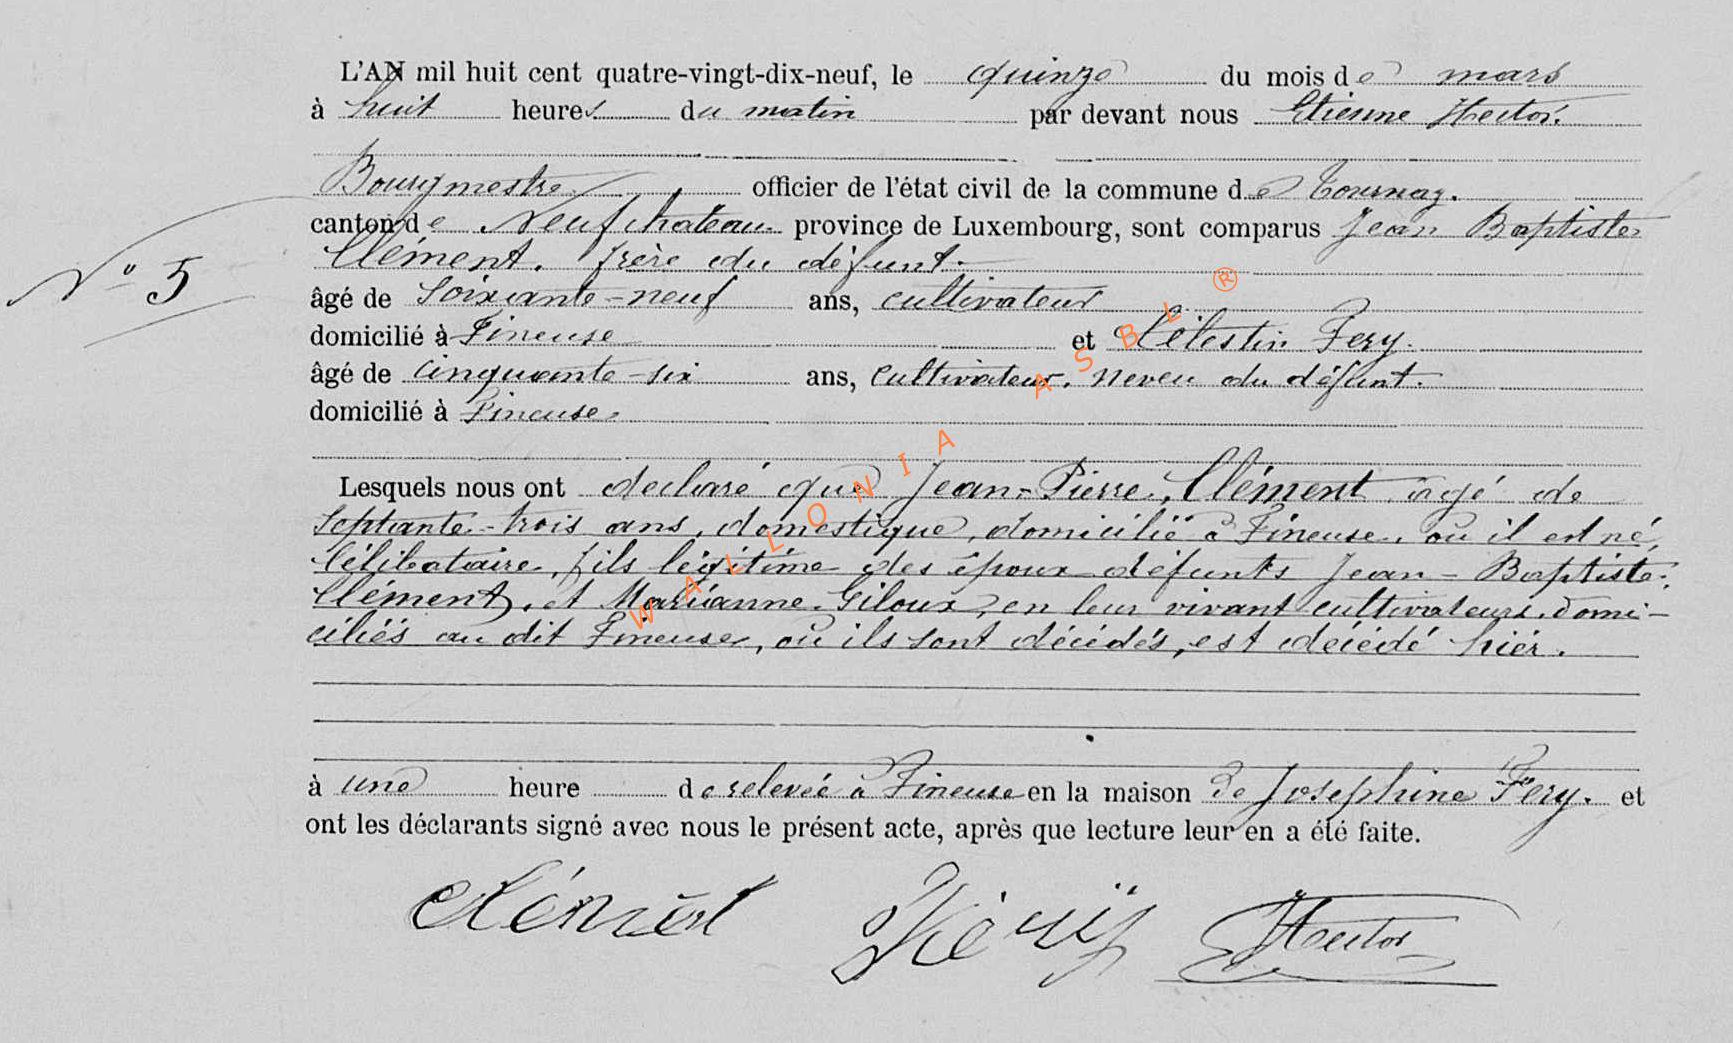 L'AN mil huit cent quatre-vingt-dix-neuf, le quinze du mois de mars
à huit heures du matin par devant nous Etienne Hector.
Bourgmestre officier de l'état civil de la commune de Tournay.
canton de Neufchateau province de Luxembourg, sont comparus Jean Baptiste
Clément. frère du défunt.
N° 5
âgé de soixante-neuf ans, cultivateur
domicilié à Fineuse et Célestin Fery.
âgé de cinquante-six ans, cultivateur. neveu du défunt.
domicilié à Fineuse
Lesquels nous ont declaré que Jean-Pierre, Clément âgé de
septante-trois ans, domestique, domicilié à Fineuse, où il est né,
Célibataire, fils légitime des époux défunts Jean-Baptiste
Clément, et Marianne Giloux, en leur vivant cultivateurs domi-
ciliés au dit Fineuse, où ils sont décédés, est décédé hier.
à une heure de relevée à Fineuse en la maison de Joséphine Fery. et
ont les déclarants signé avec nous le présent acte, après que lecture leur en a été faite.
Clément Féry Hector
WALLONIA ASBL ®